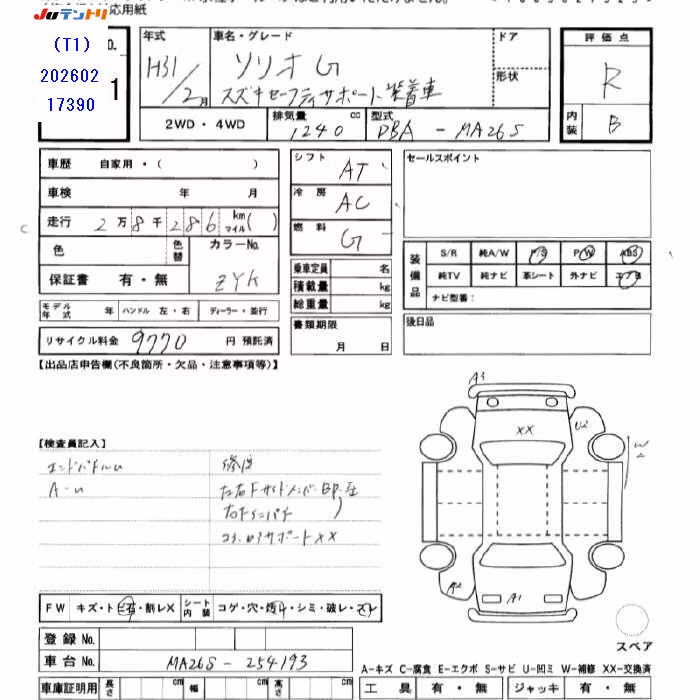 JUテントリ 応用紙
(T1) No.
202602
17390 1
年式 車名・グレード ドア 評価点
H31/2月 ソリオ G 形状 R
スズキセーフティサポート装着車
2WD・4WD 排気量 1240 cc 型式 DBA - MA26S 内装 B
車歴 自家用・( ) シフト AT セールスポイント
車検 年 月 冷房 AC
走行 2万8千286 km マイル( ) 燃料 G
色 色替 カラーNo. ZYK
保証書 有・無
乗車定員 名
積載量 kg
総重量 kg
装備品 S/R 純A/W P/S P/W ABS
純TV 純ナビ 革シート 外ナビ エアB
ナビ型番:
モデル年式 年 ハンドル 左・右 ディーラー・並行
書類期限 月 日
後日品
リサイクル料金 9770 円 預託済
【出品店申告欄(不良箇所・欠品・注意事項等)】
A3
XX U2
W
【検査員記入】
A-U 修復
コアサポートXX
A2 A1
FW キズ・トビ石・割レX シート内装 コゲ・穴・汚レ・シミ・破レ・スレ
スペア
登録No.
車台No. MA26S-254193
A-キズ C-腐食 E-エクボ S-サビ U-凹ミ W-補修 XX-交換済
車庫証明用 長さ cm 幅 cm 高さ cm 工具 有・無 ジャッキ 有・無